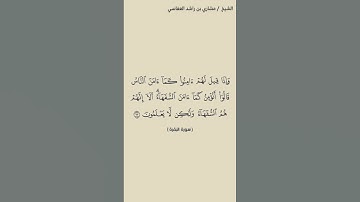 الشيخ / مشاري بن راشد العفاسي
وَإِذَا قِيلَ لَهُمْ ءَامِنُوا۟ كَمَآ ءَامَنَ ٱلنَّاسُ
قَالُوٓا۟ أَنُؤْمِنُ كَمَآ ءَامَنَ ٱلسُّفَهَآءُ ۗ أَلَآ إِنَّهُمْ
هُمُ ٱلسُّفَهَآءُ وَلَـٰكِن لَّا يَعْلَمُونَ ١٣
(سورة البقرة)